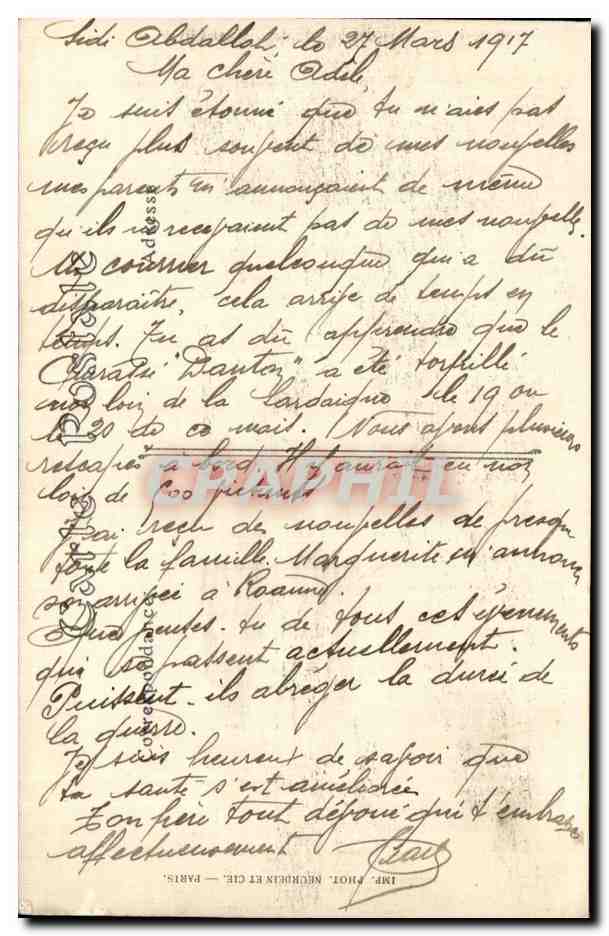 Sidi Abdallah, le 27 Mars 1917
Ma chère Adèle,
Je suis étonné que tu n'aies pas
reçu plus souvent de mes nouvelles
mes parents m'annonçaient de même
qu'ils ne recevaient pas de mes nouvelles.
Un courrier quelconque qui a dû
disparaître, cela arrive de temps en
temps. Tu as dû apprendre que le
Cuirassé "Danton" a été torpillé
non loin de la Sardaigne le 19 ou
le 20 de ce mois. Nous avons plusieurs
rescapés à bord. Il y aurait eu non
loin de 500 victimes
J'ai reçu des nouvelles de presque
toute la famille. Marguerite m'annonce
son arrivée à Roanne.
Que penses-tu de tous ces événements
qui se passent actuellement.
Puissent-ils abréger la durée de
la guerre.
Je suis heureux de savoir que
ta santé s'est améliorée
Ton frère tout dévoué qui t'embrasse
affectueusement
Carte Postale
Correspondance
Adresse
IMP. PHOT. NEURDEIN ET CIE. — PARIS.
CPAPHIL